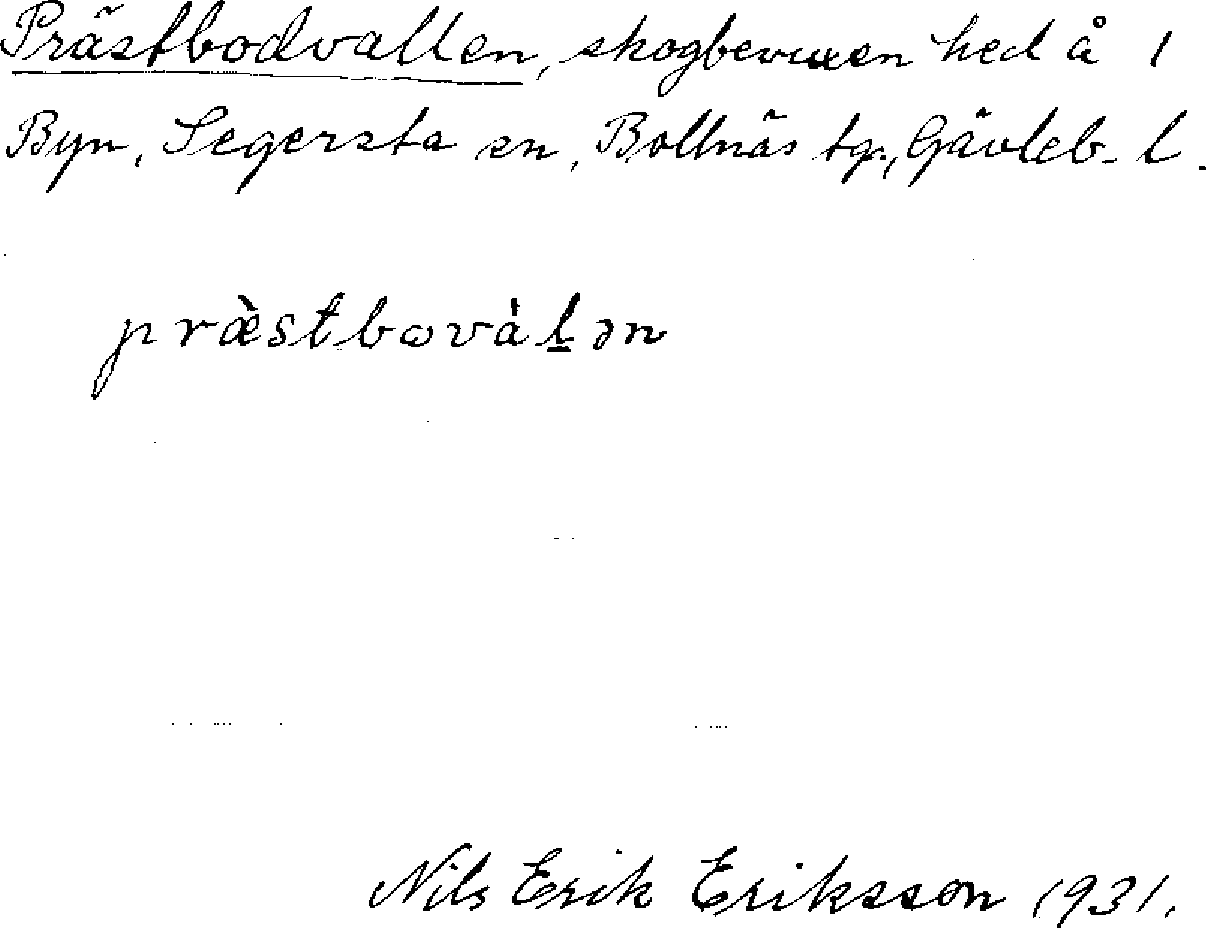 Prästbodvallen, skogbevuxen hed å 1
Byn, Segersta sn, Bollnäs tg., Gävleb. l.
præ̀stbωvàl̲ən
Nils Erik Eriksson 1931.